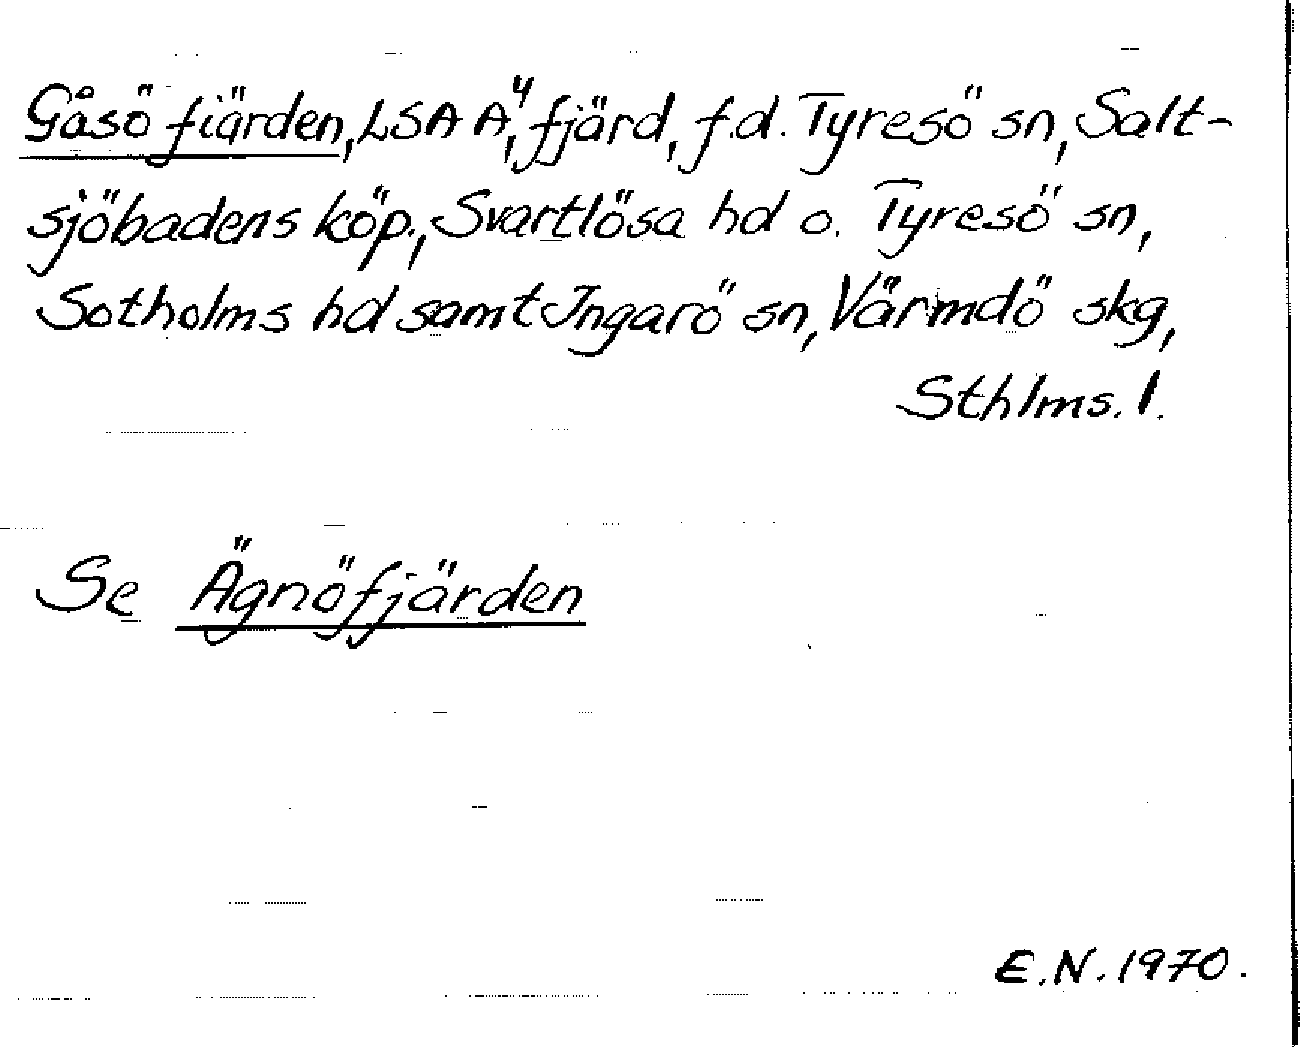 Gåsö fiärden, LSA A⁴, fjärd, f.d. Tyresö sn, Salt-
sjöbadens köp., Svartlösa hd o. Tyresö sn,
Sotholms hd samt Ingarö sn, Värmdö skg,
Sthlms. l.
Se Ägnöfjärden
E.N. 1970.